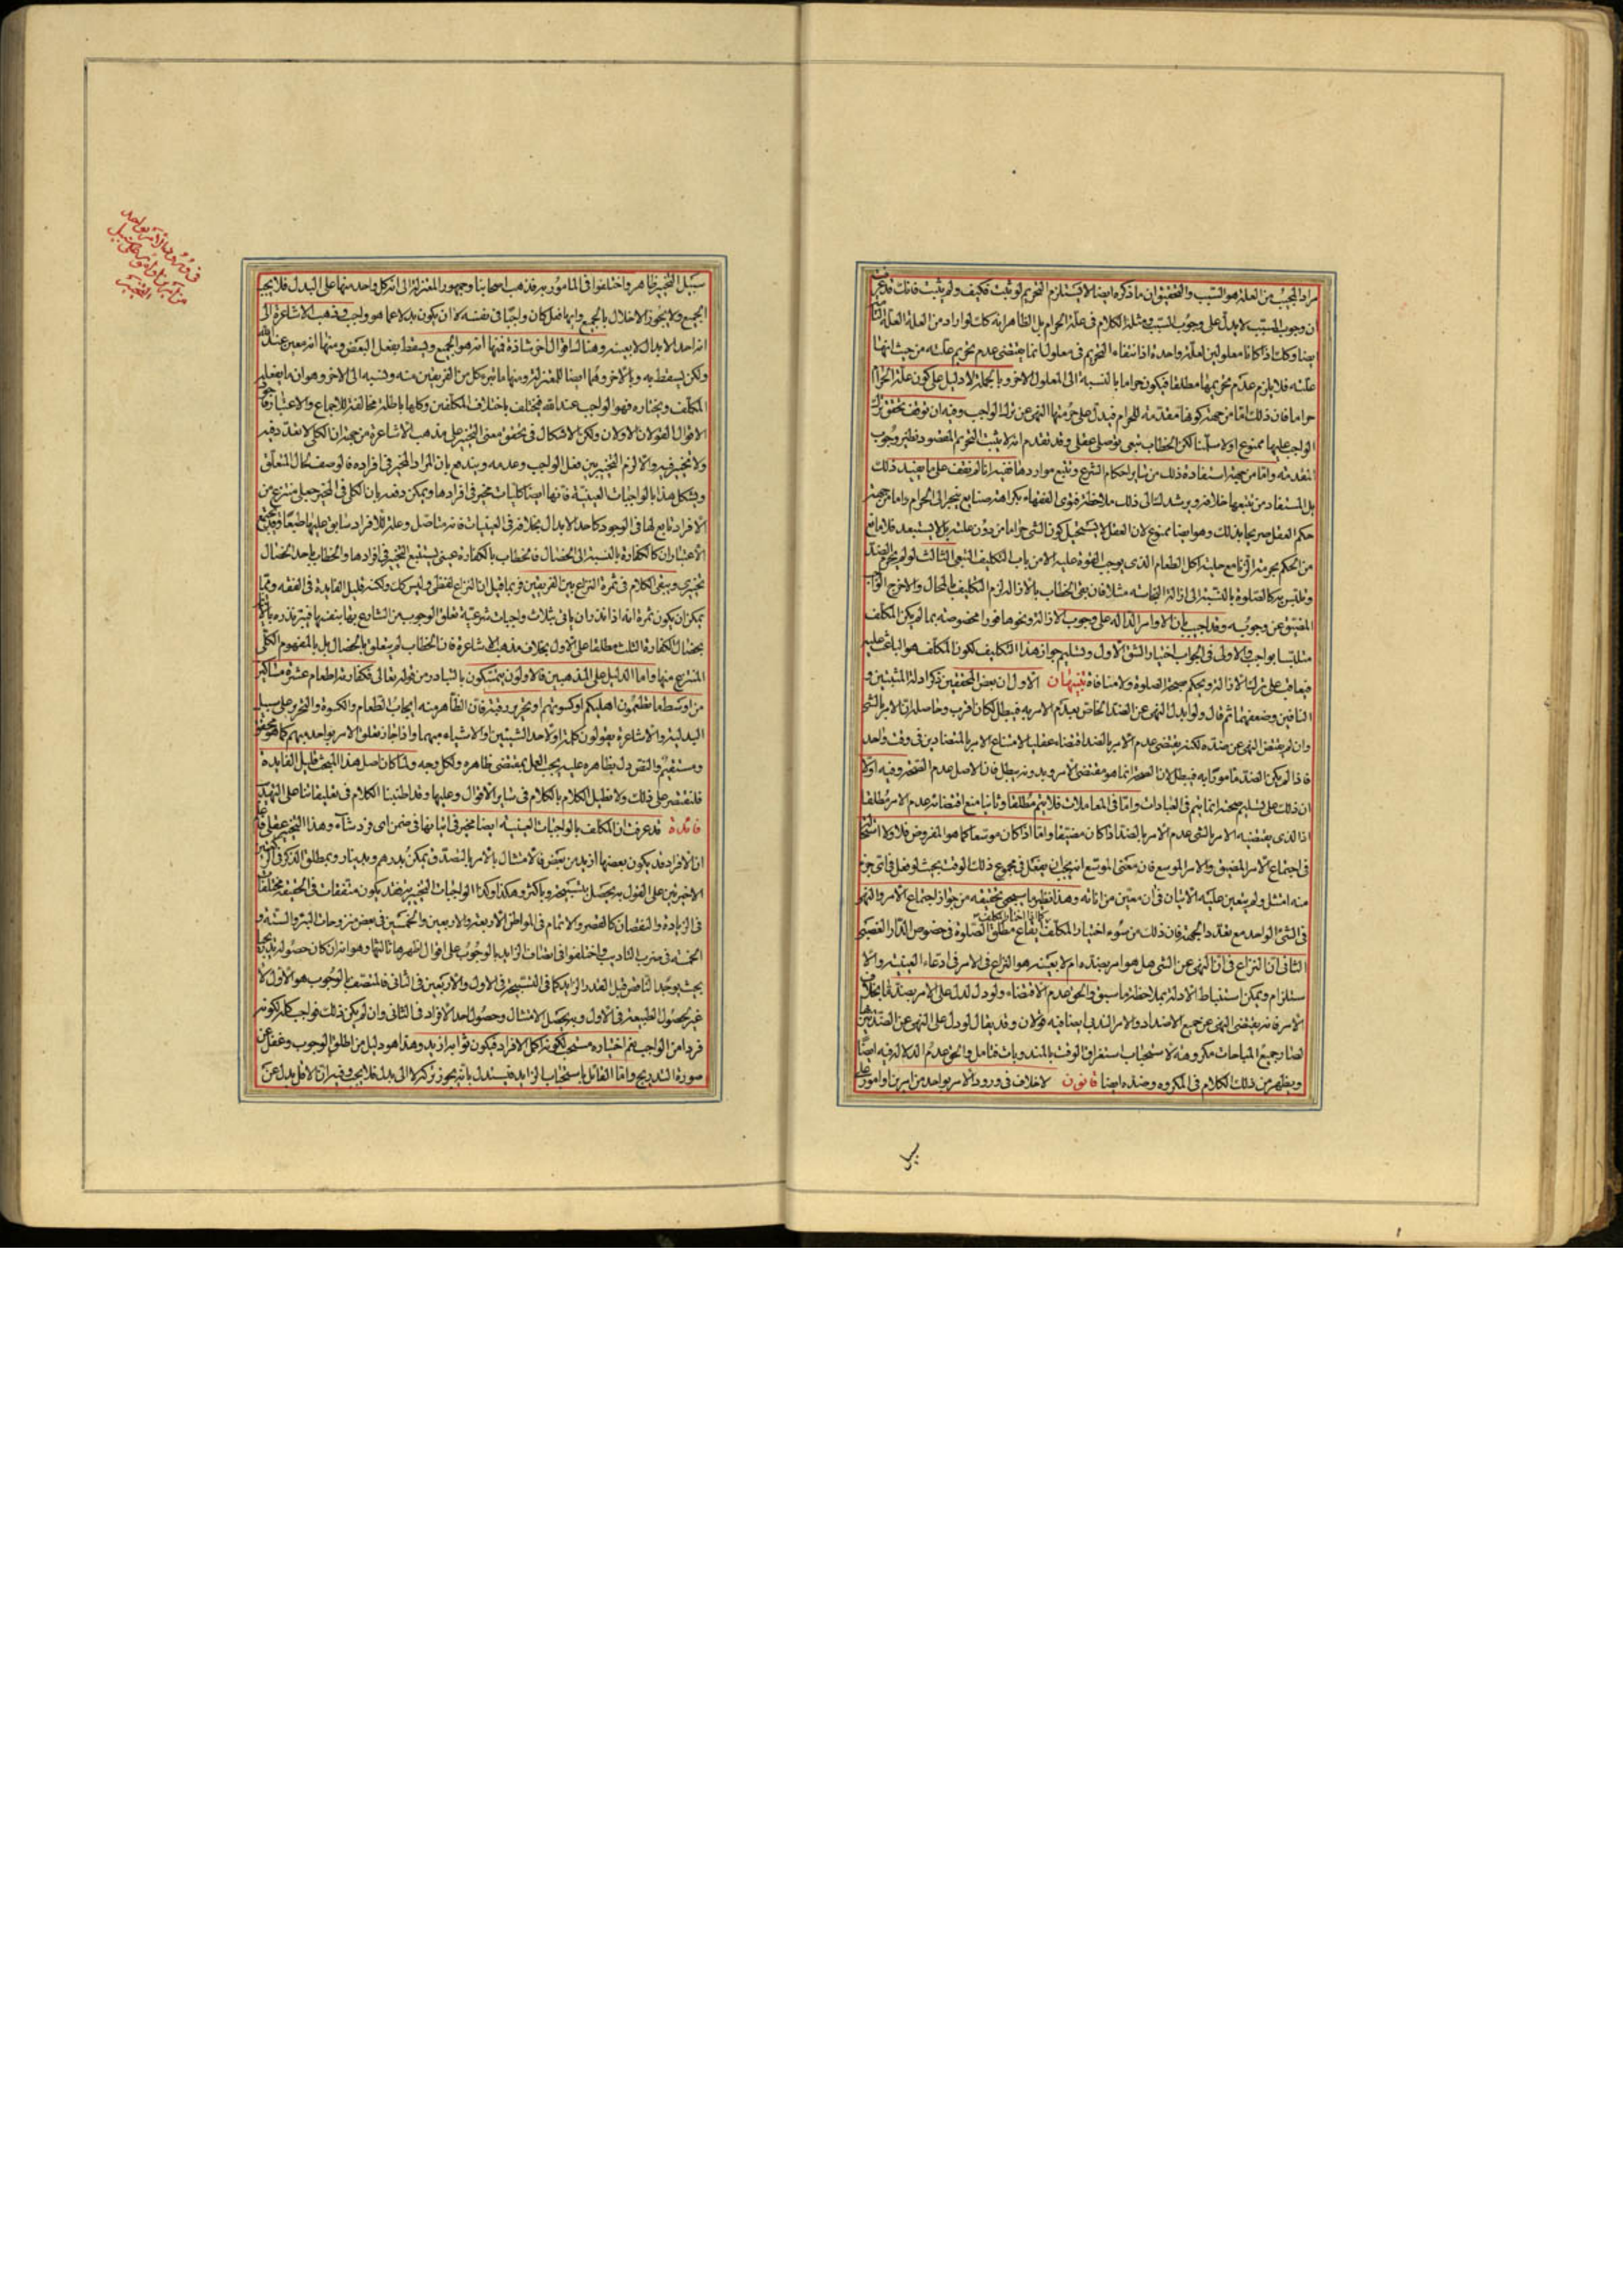 مراد المجيب من العلة هو السبب والتحقيق ان ما ذكره ايضا لا يستلزم التحريم لو ثبت فكيف ولم يثبت فانك قد عرفت
ان وجوب المسبب لا يدل على وجوب السبب ومثله الكلام في علة الحرام بل الظاهر انه كك لو اراد من العلة العلة التامة
ايضا وكك اذا كانا معلولين لعلة واحدة اذ انتفاء التحريم في معلول انما يقتضي عدم تحريم علته من حيث انها
علته فلا يلزم عدم تحريمها مطلقا فيكون حراما بالنسبة الى المعلول الاخر وبالجملة لا دليل على كون علة الحرام
حراما فان ذلك اما من جهة كونها مقدمة للحرام فيدل على حرمتها النهي عن ترك الواجب وفيه ان توقف تحقق ترك
الواجب عليها ممنوع اولا سلمنا لكن الخطاب تبعي توصلي عقلي وقد تقدم انه لا يثبت التحريم المقصود نظير وجوب
المقدمة واما من جهة استفادة ذلك من ساير احكام الشرع وتتبع مواردها ففيه انا لم نقف على ما يفيد ذلك
بل المستفاد من تتبعها خلافه ويرشد لك الى ذلك ملاحظة فتوى الفقهاء بكراهة صنايع ينجر الى الحرام واما من جهة
حكم العقل صريحا بذلك وهو ايضا ممنوع لان العقل لا يستحيل كون الشئ حراما من دون علته بل لا يستبعد فلا مانع
من الحكم بحرمة الزنا مع حلية اكل الطعام الذي يوجب القوة عليه الا من باب التكليف التبعي الثالث لو لم يحرم الضد
وتلبس به كالصلوة بالنسبة الى ازالة النجاسة مثلا فان بقي الخطاب بالازالة لزم التكليف بالمحال والا خرج الواجب
المضيق عن وجوبه وقد اجيب بان الاوامر الدالة على وجوب الازالة ونحوها فورا مخصوصة بما لم يكن المكلف
متلبسا بواجب والاولى في الجواب اختيار الشق الاول وتسليم جواز هذا التكليف لكون المكلف هو الباعث عليه
فيعاقب على ترك الازالة ويحكم بصحة الصلوة ولا منافاة تنبيهان الاول ان بعض المحققين ذكر ادلة المثبتين و
النافين وضعفهما ثم قال ولو ابدل النهي عن الضد الخاص بعدم الامر به فيبطل لكان اقرب وحاصله ان الامر بالشئ
وان لم يقتض النهي عن ضده لكنه يقتضي عدم الامر بالضد اقتضاء عقليا لامتناع الامر بالمتضادين في وقت واحد
فاذا لم يكن الضد مامورا به فيبطل لان الصحة انما هو مقتضى الامر وبدونه يبطل فان الاصل عدم الصحة وفيه اولا
ان ذلك على تسليم صحته انما يتم في العبادات واما في المعاملات فلا يتم مطلقا وثانيا منع اقتضائه عدم الامر مطلقا
اذ الذي يقتضيه الامر بالشئ عدم الامر بالضد اذا كان مضيقا واما اذا كان موسعا كما هو المفروض فلا ولا استحالة
في اجتماع الامر المضيق والامر الموسع فان معنى الموسع انه يجب ان يفعل في مجموع ذلك الوقت بحيث لو فعل في اي جزء
منه امتثل ولم يتعين عليه الاتيان في آن معين من اناته وهذا نظير ما سيجئ تحقيقه من جواز اجتماع الامر والنهي
في الشئ الواحد مع تعدد الجهة فان ذلك من سوء اختيار المكلف كما اذا اختار المكلف ايقاع مطلق الصلوة في خصوص الدار الغصبي
الثاني ان النزاع في ان النهي عن الشئ هل هو امر بضده ام لا بعينه هو النزاع في الامر في ادعاء العينية والا
ستلزام ويمكن استنباط الادلة بملاحظة ما سبق والحق عدم الاقتضاء ولو دل لدل على الامر بضد ما بخلاف
الامر فانه يقتضي النهي عن جميع الاضداد والامر الندبي ايضا فيه قولان وقد يقال لو دل على النهي عن الضد تنزيها
لصار جميع المباحات مكروهة لاستحباب استغراق الوقت بالمندوبات فتامل والحق عدم الدلالة فيه ايضا
ويظهر من ذلك الكلام في المكروه وضده ايضا قانون لا خلاف في ورود الامر بواحد من امرين او امور على
سبيل التخيير ظاهر واختلفوا في المامور به فذهب اصحابنا وجمهور المعتزلة الى انه كل واحد منها على البدل فلا يجب
الجميع ولا يجوز الاخلال بالجميع وايها فعل كان واجبا في نفسه لا ان يكون بدلا عما هو واجب وذهب الاشاعرة الى
انه احد الابدال لا بعينه وهنا اقوال اخر شاذة فمنها انه هو الجميع ويسقط بفعل البعض ومنها انه معين عند الله
ولكن يسقط به وبالاخر وهما ايضا للمعتزلة ومنها ما تبرء كل من الفريقين منه ونسبه الى الاخر وهو ان ما يفعله
المكلف ويختاره فهو الواجب عند الله فيختلف باختلاف المكلفين وكلها باطلة مخالفة للاجماع والاعتبار واجود
الاقوال القولان الاولان ولكن الاشكال في تحقق معنى التخيير على مذهب الاشاعرة من جهة ان الكلي لا تعدد فيه
ولا تخيير فيه والا لزم التخيير بين فعل الواجب وعدمه ويندفع بان المراد المخير في افراده فالوصف بحال المتعلق
ويشكل هذا بالواجبات العينية فانها ايضا كليات مخير في افرادها ويمكن دفعه بان الكلي في المخير جعلي منتزع من
الافراد تابع لها في الوجود كاحد الابدال بخلافه في العينيات فانه متاصل وعلة للافراد سابق عليها طبعا وقد يجتمع
الاعتباران كالكفارة بالنسبة الى الخصال فالخطاب بالكفارة عيني يستتبع التخيير في افرادها والخطاب باحد الخصال
تخييري ويبقى الكلام في ثمرة النزاع بين الفريقين فربما قيل ان النزاع لفظي وليس كك ولكنه قليل الفايدة في الفقه ومما
يمكن ان يكون ثمرة انه اذا نذر ان ياتي بثلاث واجبات شرعية تعلق الوجوب من الشارع بها بنفسها فيبر نذره باتيان
بخصال الكفارة الثلث مطلقا على الاول بخلاف مذهب الاشاعرة فان الخطاب لم يتعلق بالخصال بل بالمفهوم الكلي
المنتزع منها واما الدليل على المذهبين فالاولون يتمسكون بالتبادر من قوله تعالى فكفارته اطعام عشرة مساكين
من اوسط ما تطعمون اهليكم او كسوتهم او تحرير رقبة فان الظاهر منه ايجاب الطعام والكسوة والتحرير على سبيل
البدلية والاشاعرة يقولون كلمة او لاحد الشيئين او الاشياء مبهما واذا جاز تعلق الامر بواحد مبهم كما هو محقق
ومستقر والنص دل بظاهره عليه يجب العمل بمقتضى ظاهره ولكل وجه ولما كان اصل هذا المبحث قليل الفايدة
فلنقتصر على ذلك ولا نطيل الكلام بالكلام في ساير الاقوال وعليها وقد اطنبنا الكلام في تعليقاتنا على التهذيب
فائدة قد عرفت ان المكلف بالواجبات العينية ايضا مخير في اتيانها في ضمن اي فرد شاء وهذا التخيير عقلي
ان الافراد قد يكون بعضها ازيد من بعض فالامتثال بالامر بالتصدق يمكن بدرهم وبدينار وبمطلق الذكر في
الاخيرتين على القول به يحصل بتسبيحة وباكثر وهكذا وكذا الواجبات التخييرية فقد يكون متفقات في الحقيقة مختلفات
في الزيادة والنقصان كالقصر والاتمام في المواطن الاربعة والاربعين والخمسين في بعض منزوحات البئر والستة و
الخمسة في ضرب التاديب واختلفوا في اتصاف الزايد بالوجوب على اقوال اظهرها ثالثها وهو انه ان كان حصوله تدريجيا
بحيث يوجد الناقص قبل العدد الزايد كما في التسبيحة في الاول والاربعين في الثاني فالمتصف بالوجوب هو الاول لا
غير لحصول الطبيعة في الاول وبه يحصل الامتثال وحصول احد الافراد في الثاني وان لم يكن ذلك فواجب كله لكونه
فردا من الواجب نعم اختياره مستحب لكونه اكمل الافراد فيكون ثوابه ازيد وهذا هو دليل من اطلق الوجوب وغفل عن
صورة التدريج واما القائل باستحباب الزايد فيستدل بانه يجوز تركه لا الى بدل فلا يجب وفيه ان الاقل بدل عن
في ورود الامر بواحد
من امرين او امور على سبيل
التخيير